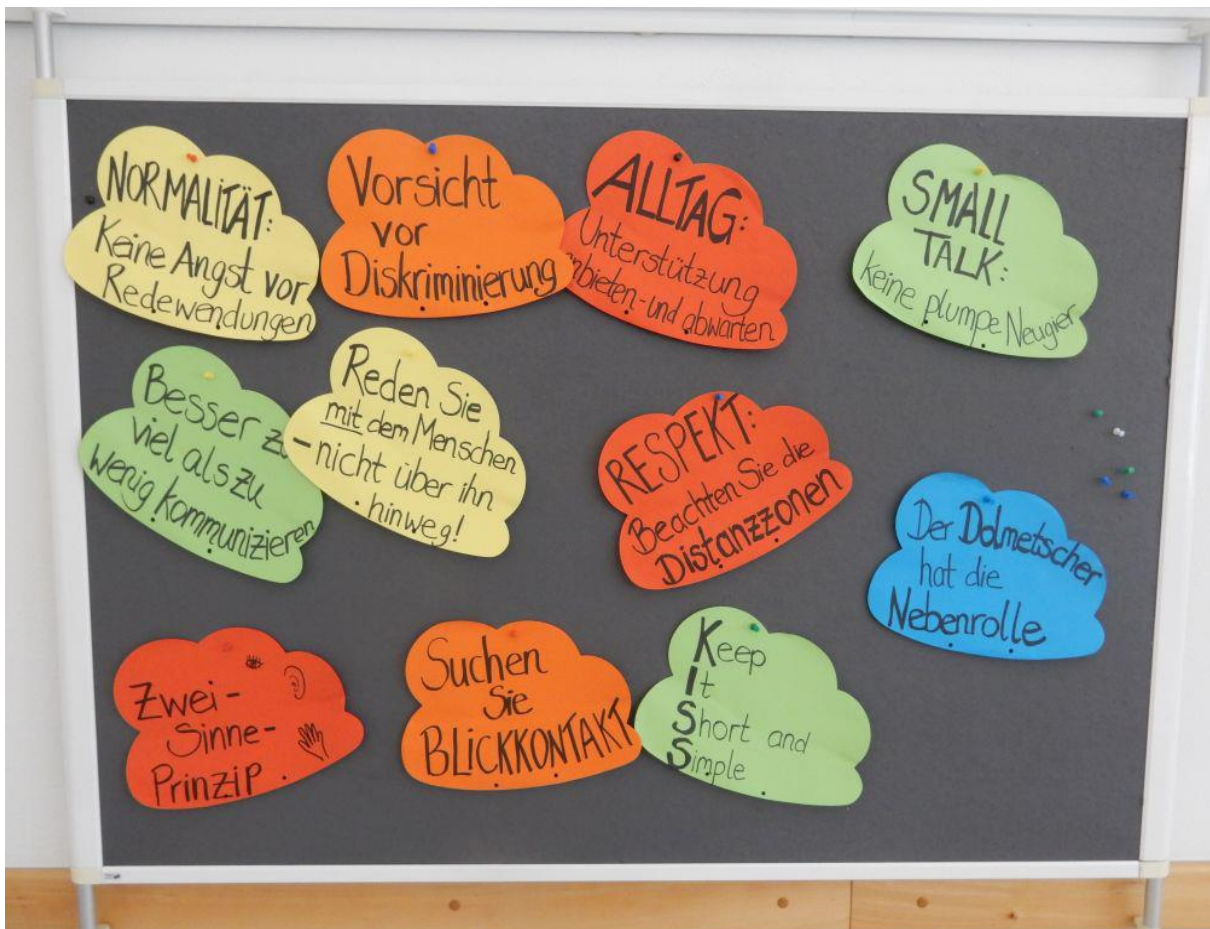 NORMALITÄT:
Keine Angst vor
Redewendungen
Vorsicht
vor
Diskriminierung
ALLTAG:
Unterstützung
nbieten-und abwarten
SMALL
TALK:
keine plumpe Neugier
Besser z
viel als zu
wenig kommunizieren
Reden Sie
mit dem Menschen
-nicht über ihn
hinweg!
RESPEKT:
Beachten Sie die
Distanzzonen
Der Dolmetscher
hat die
Nebenrolle
Zwei-
Sinne-
Prinzip
Suchen
Sie
BLICKKONTAKT
Keep
It
Short and
Simple